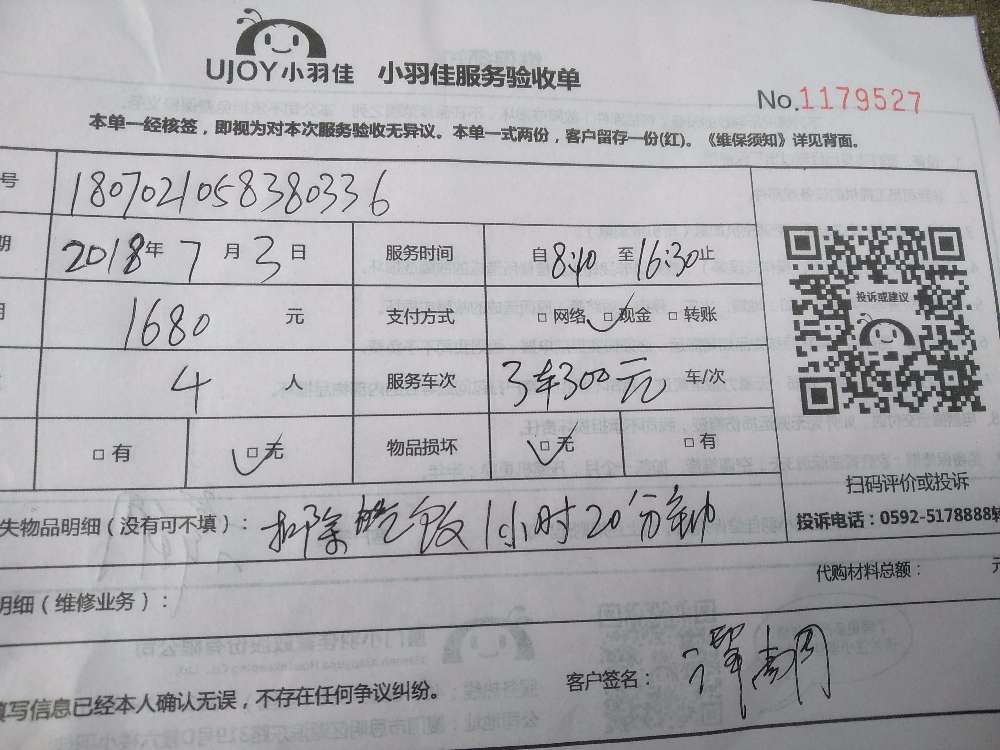 UJOY小羽佳 小羽佳服务验收单
No.1179527
本单一经核签，即视为对本次服务验收无异议。本单一式两份，客户留存一份(红)。《维保须知》详见背面。
号 180702105838033 6
期 2018年7月3日 服务时间 自8:40至16:30止
1680元 支付方式 □网络 □现金 □转账
4人 服务车次 3车300元 车/次
□有 □无 物品损坏 □无 □有
投诉或建议
扫码评价或投诉
投诉电话：0592-5178888转
失物品明细（没有可不填）： 扣除吃饭1小时20分钟
代购材料总额： 元
明细（维修业务）：
填写信息已经本人确认无误，不存在任何争议纠纷。
客户签名：